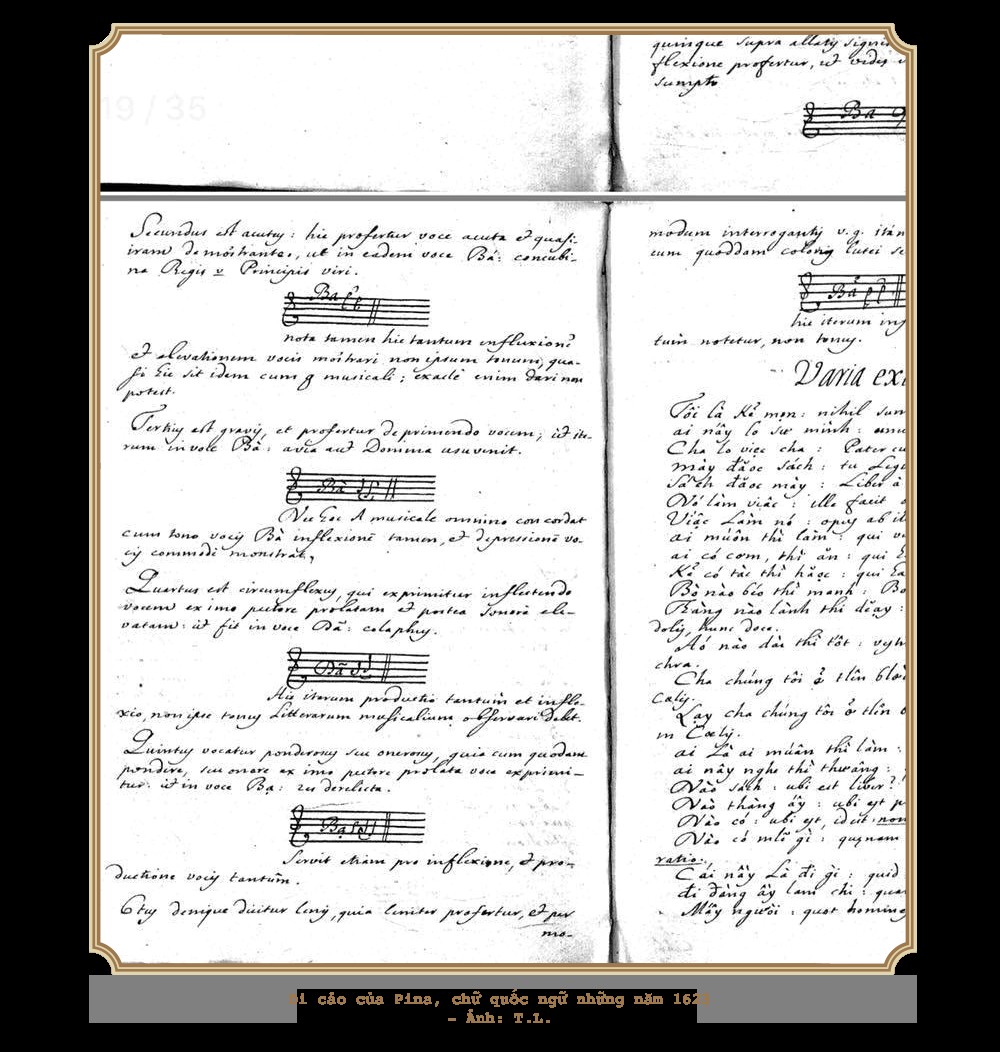 19 / 35
quinque supra allatis
flexione profertur, ut
sumpto
Ba
Secundus est acutus: hic profertur voce acuta et quasi
iram demonstrante, ut in eadem voce Bá: concubi-
na Regis v Principis viri.
Ba
nota tamen hic tantum influxionẽ
et elevationem vocis mostrari non ipsum tonum, qua-
si hic sit idem cum g musicali; exacte enim dari non
potest.
Tertius est gravis, et profertur deprimendo vocem; ut ite-
rum in voce Bà: avia aut Domina
Bà
Nec hoc A musicale omnino concordat
cum tono vocis Bà inflexionẽ tamen, et depressionẽ vo-
cis commodè monstrat,
Quartus est circumflexus, qui exprimitur inflectendo
vocem ex imo pectore prolatam et postea sonorè ele-
vatam: ut fit in voce Bã: colaphus.
Bã
Hic iterum productio tantum et infle-
xio, non ipse tonus Litterarum musicalium observari debet.
Quintus vocatur ponderosus seu onerosus, quia cum quodam
pondere, seu onere ex imo pectore prolata voce exprimi-
tur: ut in voce Bạ: res derelicta.
Bạ
Servit etiam pro inflexione, et pro-
ductione vocis tantum.
6tus denique dicitur lenis, quia leniter profertur, et per
mo-
modum interrogantis v.g. itàn
cum quoddam
Bả
hic iterum
tum notetur, non tonus.
Varia
Tôi là kẻ mọn: nihil sum
ai nấy lo sự mình:
Cha lo việc cha: Pater
mày đăọc sách: tu
Sách đăọc mày: Liber à
Nó làm viậc: ille facit
Viậc làm nó: opus ab
ai muốn thì làm: qui
ai có cơm, thì ăn: qui
Kẻ có tài thì hăọc: qui
Bò nào béo thì mạnh:
Ràng nào lành thì
dolis, hunc doce.
Áó nào dài thì tốt:
chra.
Cha chúng tôi ở tlên
Cælis.
Lạy cha chúng tôi ở tlên
in Cælis.
ai là ai thì làm:
ai nấy nghe thì
Nào sách: ubi est liber?
Nào thàng ấy: ubi est
Nào có: ubi est, id est non
Nào có mlẽ gì: quænam
ratio.
Cái nầy là đí gì: quid
đi đàng ấy làm chi:
Mấy người: quot
Di cảo của Pina, chữ quốc ngữ những năm 162
– Ảnh: T.L.